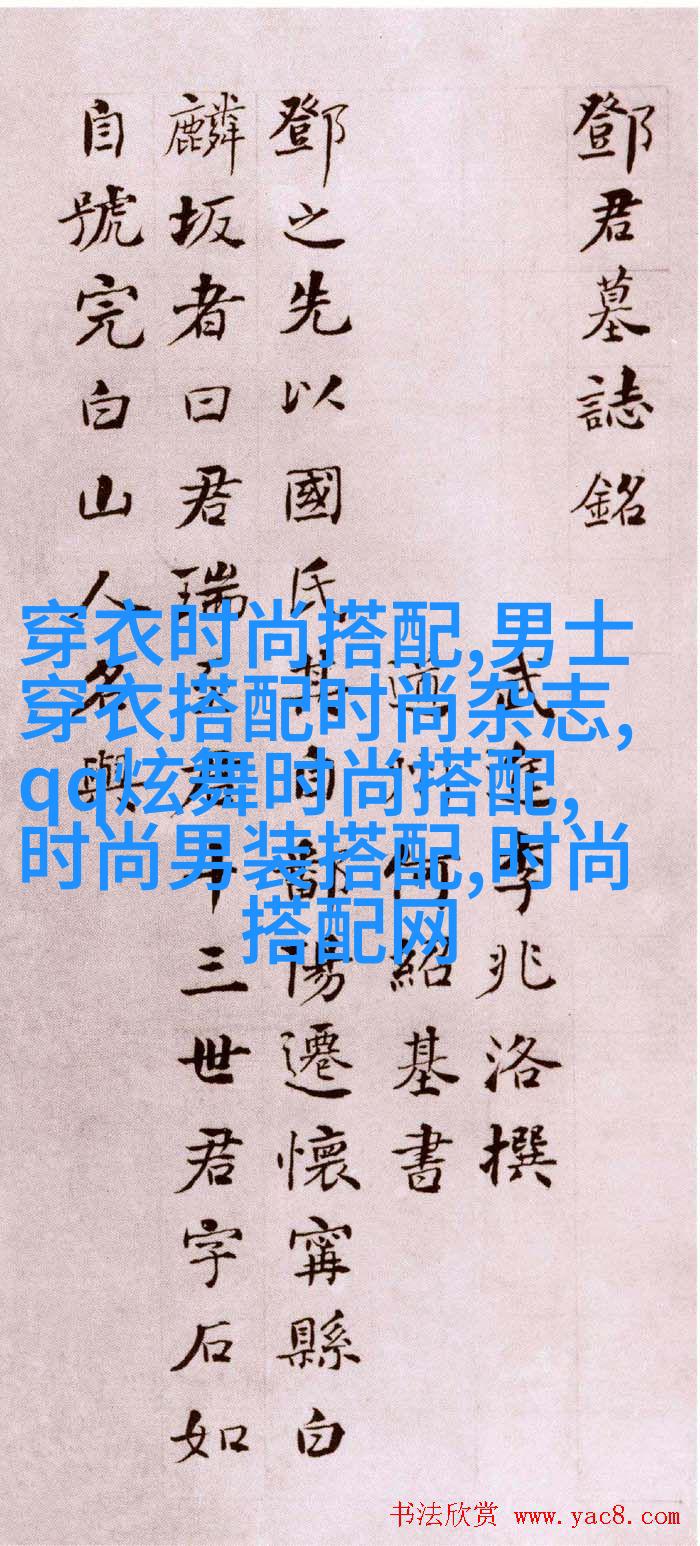 鄧君墓誌銘
武進李兆洛撰
何紹基書
鄧之先以國氏其自鄱陽遷懷甯縣白
麟坂者曰君瑞君十三世君字石如
自號完白山人名與
穿衣时尚搭配,男士
穿衣搭配时尚杂志,
qq炫舞时尚搭配,
时尚男装搭配,时尚
搭配网
书法欣赏 www.yac8.com